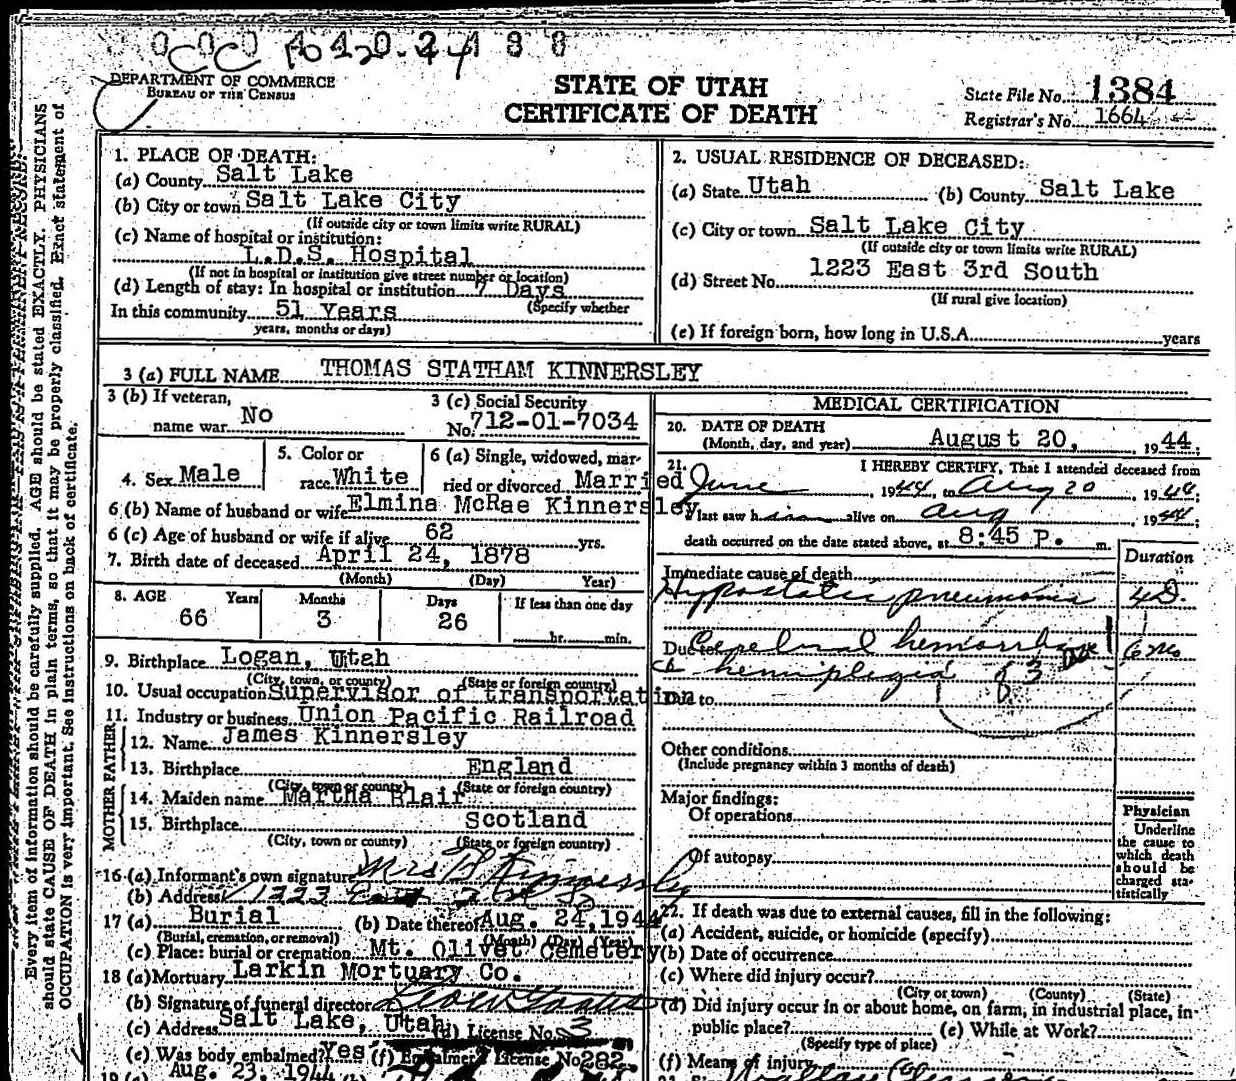 DEPARTMENT OF COMMERCE
BUREAU OF THE CENSUS
STATE OF UTAH
CERTIFICATE OF DEATH
State File No. 1384
Registrar's No. 1664
Every item of information should be carefully supplied. AGE should be stated EXACTLY. PHYSICIANS
should state CAUSE OF DEATH in plain terms, so that it may be properly classified. Exact statement of
OCCUPATION is very important. See instructions on back of certificate.
1. PLACE OF DEATH:
(a) County Salt Lake
(b) City or town Salt Lake City
(If outside city or town limits write RURAL)
(c) Name of hospital or institution:
L.D.S. Hospital
(If not in hospital or institution give street number or location)
(d) Length of stay: In hospital or institution 7 Days
(Specify whether
In this community 51 Years
years, months or days)
2. USUAL RESIDENCE OF DECEASED:
(a) State Utah (b) County Salt Lake
(c) City or town Salt Lake City
(If outside city or town limits write RURAL)
(d) Street No. 1223 East 3rd South
(If rural give location)
(e) If foreign born, how long in U.S.A. years
3 (a) FULL NAME THOMAS STATHAM KINNERSLEY
3 (b) If veteran,
name war No
3 (c) Social Security
No. 712-01-7034
4. Sex Male
5. Color or
race White
6 (a) Single, widowed, mar-
ried or divorced Married
6 (b) Name of husband or wife Elmina McRae Kinnersley
6 (c) Age of husband or wife if alive 62 yrs.
7. Birth date of deceased April 24, 1878
(Month) (Day) Year)
8. AGE Years Months Days If less than one day
66 3 26 hr. min.
9. Birthplace Logan, Utah
(City, town, or county) (State or foreign country)
10. Usual occupation Supervisor of transportation
11. Industry or business Union Pacific Railroad
FATHER
12. Name James Kinnersley
13. Birthplace England
(City, town or county) (State or foreign country)
MOTHER
14. Maiden name Martha Blair
15. Birthplace Scotland
(City, town or county) (State or foreign country)
16 (a) Informant's own signature Mrs Kinnersley
(b) Address 1223 East So
17 (a) Burial (b) Date thereof Aug. 24, 1944
(Burial, cremation, or removal) (Month) (Day) (Year)
(c) Place: burial or cremation Mt. Olivet Cemetery
18 (a) Mortuary Larkin Mortuary Co.
(b) Signature of funeral director
(c) Address Salt Lake, Utah (d) License No. 3
(e) Was body embalmed? Yes (f) Embalmer's License No. 282
19 (a) Aug. 23, 1944 (b)
MEDICAL CERTIFICATION
20. DATE OF DEATH
(Month, day, and year) August 20, 1944;
21. I HEREBY CERTIFY, That I attended deceased from
June, 1944, to Aug 20, 1944;
I last saw him alive on Aug, 1944;
death occurred on the date stated above, at 8:45 P. m.
Duration
Immediate cause of death
Hypostatic pneumonia 4 D.
Due to Cerebral hemorrhage 6 mo
hemiplegia 83
Due to
Other conditions
(Include pregnancy within 3 months of death)
Major findings:
Of operations
Of autopsy
Physician
Underline
the cause to
which death
should be
charged sta-
tistically
22. If death was due to external causes, fill in the following:
(a) Accident, suicide, or homicide (specify)
(b) Date of occurrence
(c) Where did injury occur?
(City or town) (County) (State)
(d) Did injury occur in or about home, on farm, in industrial place, in
public place? (e) While at Work?
(Specify type of place)
(f) Means of injury